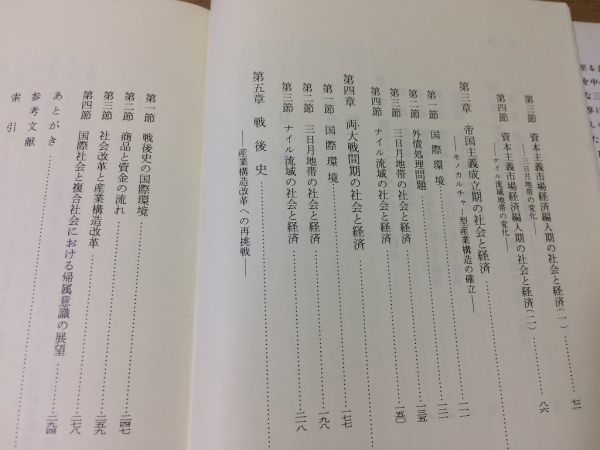 第三節 資本主義市場経済編入期の社会と経済(一)……七一
――三日月地帯の変化――
第四節 資本主義市場経済編入期の社会と経済(二)……八六
――ナイル流域地帯の変化――
第三章 帝国主義成立期の社会と経済……一一一
――モノカルチャー型産業構造の確立――
第一節 国際環境……一二一
第二節 外債処理問題……一三五
第三節 三日月地帯の社会と経済……一五〇
第四節 ナイル流域の社会と経済
第四章 両大戦間期の社会と経済……一七七
第一節 国際環境
第二節 三日月地帯の社会と経済……一九八
第三節 ナイル流域の社会と経済……二一八
第五章 戦後史
――産業構造改革への再挑戦――
第一節 戦後史の国際環境
第二節 商品と資金の流れ……二四七
第三節 社会改革と産業構造改革……二五九
第四節 国際社会と複合社会における帰属意識の展望……二七八
あとがき……二九四
参考文献
索引